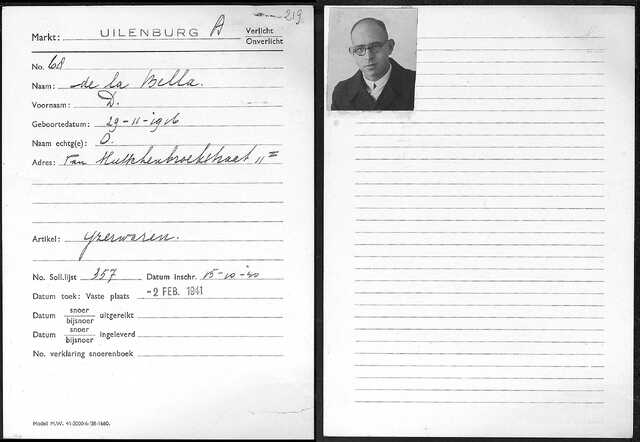 219
Markt: UILENBURG A Verlicht
Onverlicht
No. 68
Naam: de la Bella.
Voornaam: D.
Geboortedatum: 29-11-1906
Naam echtg(e): O.
Adres: van Hutschenbroekstraat 11 II
Artikel: Yzerwaren.
No. Soll.lijst 357 Datum inschr. 15-10-40
Datum toek: Vaste plaats -2 FEB. 1941
Datum snoer
bijsnoer uitgereikt
Datum snoer
bijsnoer ingeleverd
No. verklaring snoerenboek